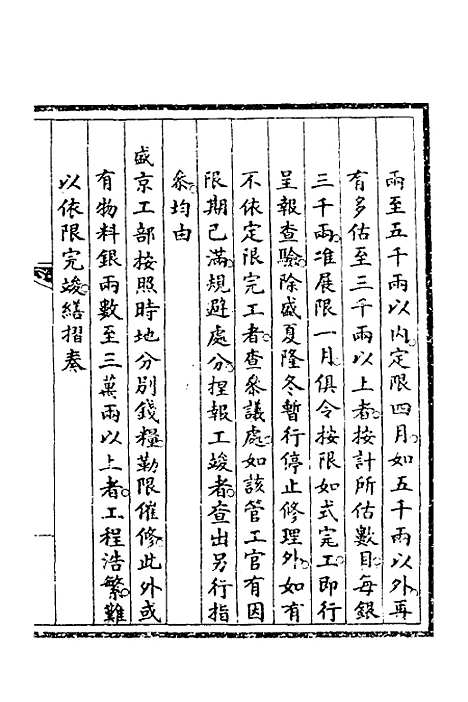 兩至五千兩以內。定限四月。如五千兩以外。再
有多估至三千兩以上者。按計所估數目。每銀
三千兩。准展限一月。俱令按限如式完工。即行
呈報查驗。除盛夏隆冬暫行停止修理外。如有
不依定限完工者。查叅議處。如該管工官有因
限期已滿。規避處分。捏報工竣者。查出另行指
叅。均由
盛京工部按照時地分別錢糧勒限催修。此外或
有物料銀兩數至三萬兩以上者。工程浩繁。難
以依限完竣。繕摺奏